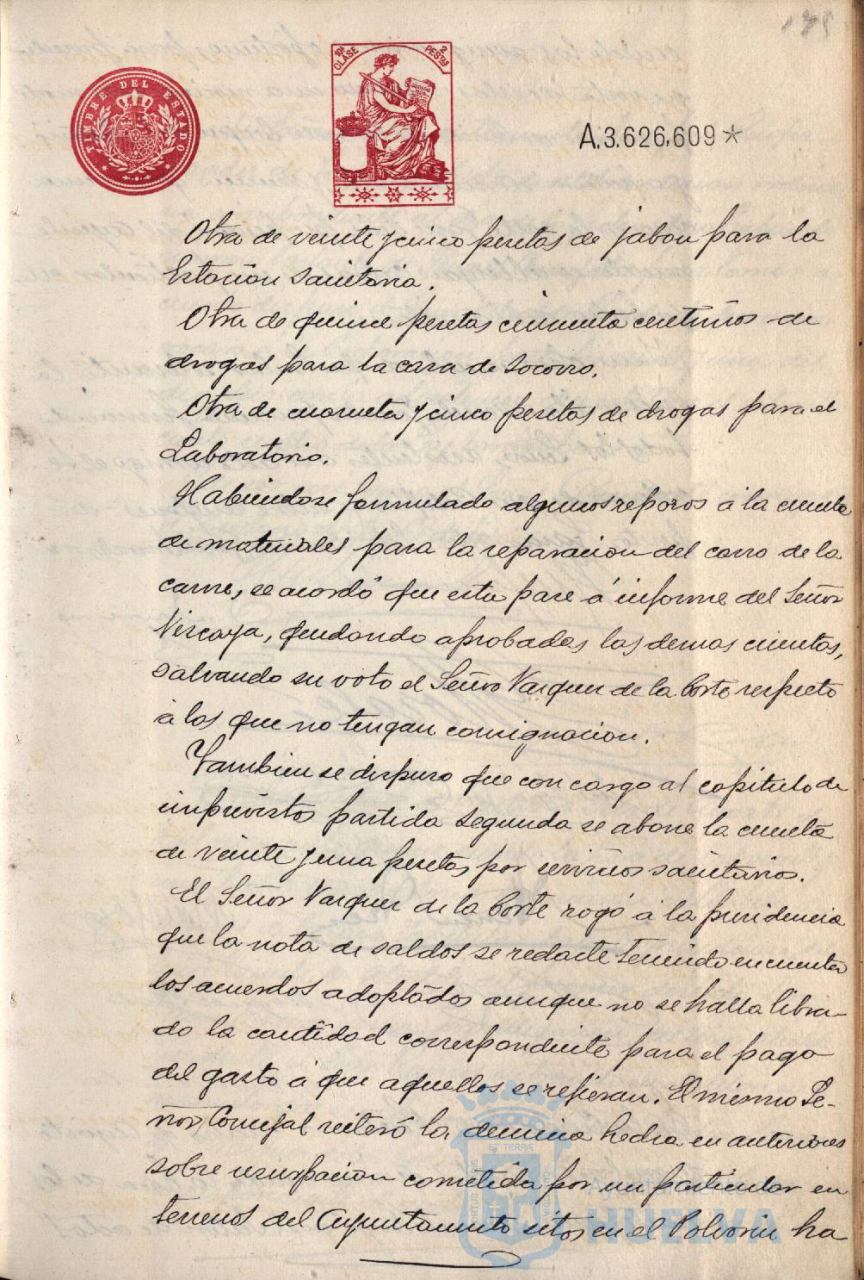 175
TIMBRE DEL ESTADO
10ª CLASE 2 PESTAS
A.3.626,609*
Otra de veinte y cinco pesetas de jabon para la
Estación sanitaria.
Otra de quince pesetas cincuenta centimos de
drogas para la casa de Socorro.
Otra de cuarenta y cinco pesetas de drogas para el
Laboratorio.
Habiendose formulado algunos reparos á la cuenta
de materiales para la reparacion del carro de la
carne, se acordó que esta pase á informe del Señor
Vizcaya, quedando aprobadas las demas cuentas,
salvando su voto el Señor Vazquez de la Corte respecto
á las que no tengan consignacion.
Tambien se dispuso que con cargo al capitulo de
imprevistos partida segunda se abone la cuenta
de veinte y una pesetas por servicios sanitarios.
El Señor Vazquez de la Corte rogó á la presidencia
que la nota de saldos se redacte teniendo en cuenta
los acuerdos adoptados aunque no se halla libra-
do la cantidad correspondiente para el pago
del gasto á que aquellos se refieran. El mismo Se-
ñor Concejal reiteró la denuncia hecha en anteriores
sobre usurpacion cometida por un particular en
terrenos del Ayuntamiento sitos en el Polvorin ha
HUELVA